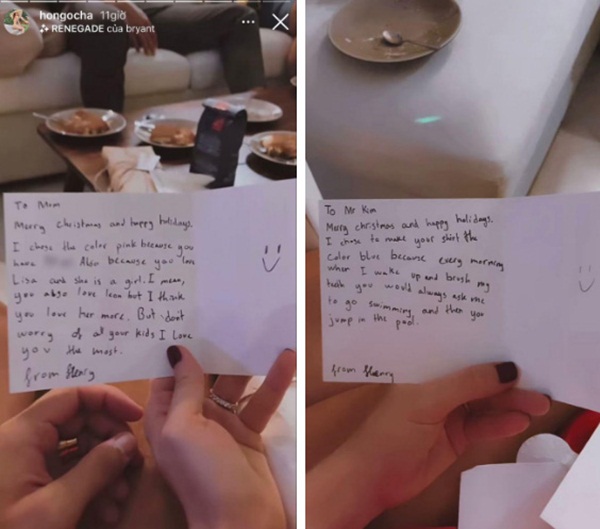 hongocha 11giờ
RENEGADE của bryant
To Mom
Merry christmas and happy holidays.
I chose the color pink because you
have Also because you love
Lisa and she is a girl. I mean,
you also love leon but I think
you love her more. But don't
worry of all your kids I Love
you the most.
from Henry
To Mr Kim
Merry christmas and happy holidays.
I chose to make your shirt the
color blue because every morning
when I wake up and brush my
teeth you would always ask me
to go swimming and then you
jump in the pool.
from Henry